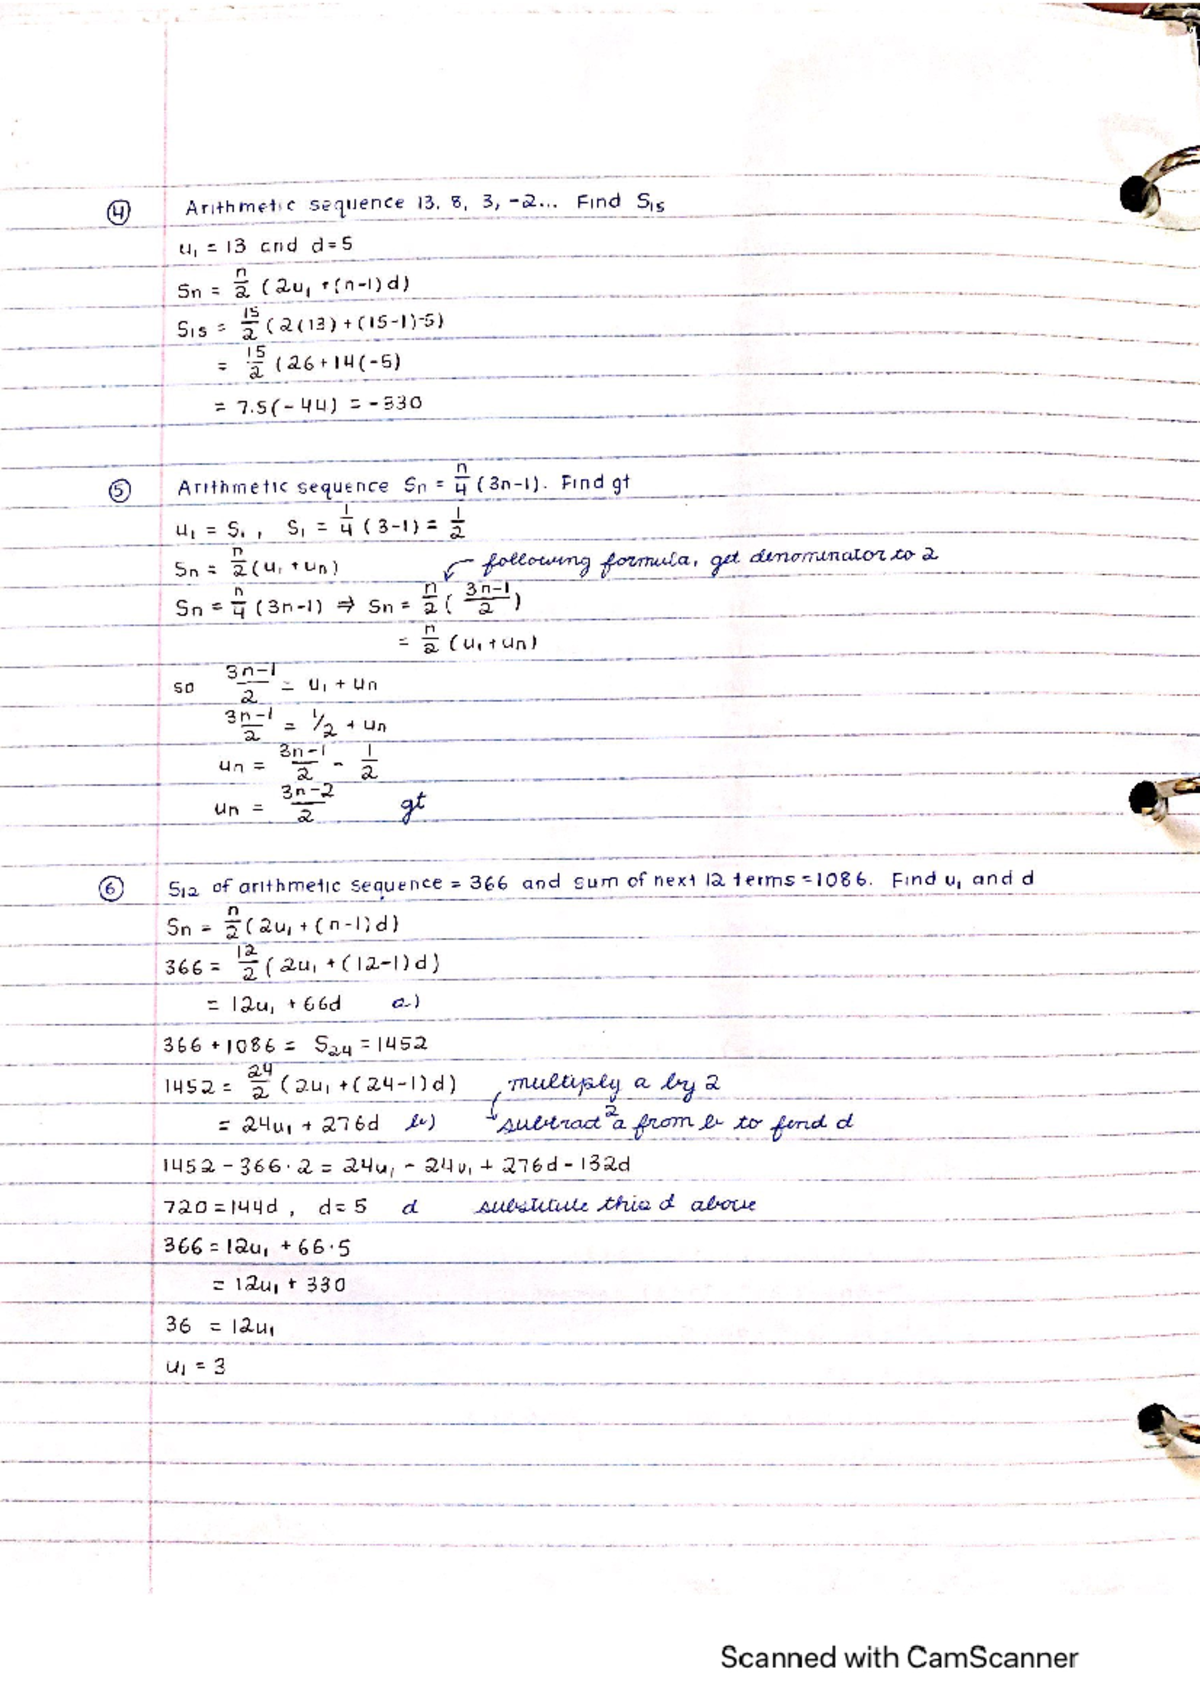 ④ Arithmetic sequence 13, 8, 3, -2... Find S₁₅
u₁ = 13 and d = 5
Sn = n/2 (2u₁ + (n-1)d)
S₁₅ = 15/2 (2(13) + (15-1)-5)
= 15/2 (26 + 14(-5)
= 7.5(-44) = -330
⑤ Arithmetic sequence Sn = n/4 (3n-1). Find gt
u₁ = S₁, S₁ = 1/4 (3-1) = 1/2
Sn = n/2 (u₁ + un) following formula, get denominator to 2
Sn = n/4 (3n-1) ⇒ Sn = n/2 ( (3n-1)/2 )
= n/2 (u₁ + un)
so (3n-1)/2 = u₁ + un
(3n-1)/2 = 1/2 + un
un = (3n-1)/2 - 1/2
un = (3n-2)/2 gt
⑥ S₁₂ of arithmetic sequence = 366 and sum of next 12 terms = 1086. Find u₁ and d
Sn = n/2 (2u₁ + (n-1)d)
366 = 12/2 (2u₁ + (12-1)d)
= 12u₁ + 66d a)
366 + 1086 = S₂₄ = 1452
1452 = 24/2 (2u₁ + (24-1)d) multiply a by 2
= 24u₁ + 276d b) subtract 2a from b to find d
1452 - 366·2 = 24u₁ - 24u₁ + 276d - 132d
720 = 144d, d = 5 d substitute this d above
366 = 12u₁ + 66·5
= 12u₁ + 330
36 = 12u₁
u₁ = 3
Scanned with CamScanner